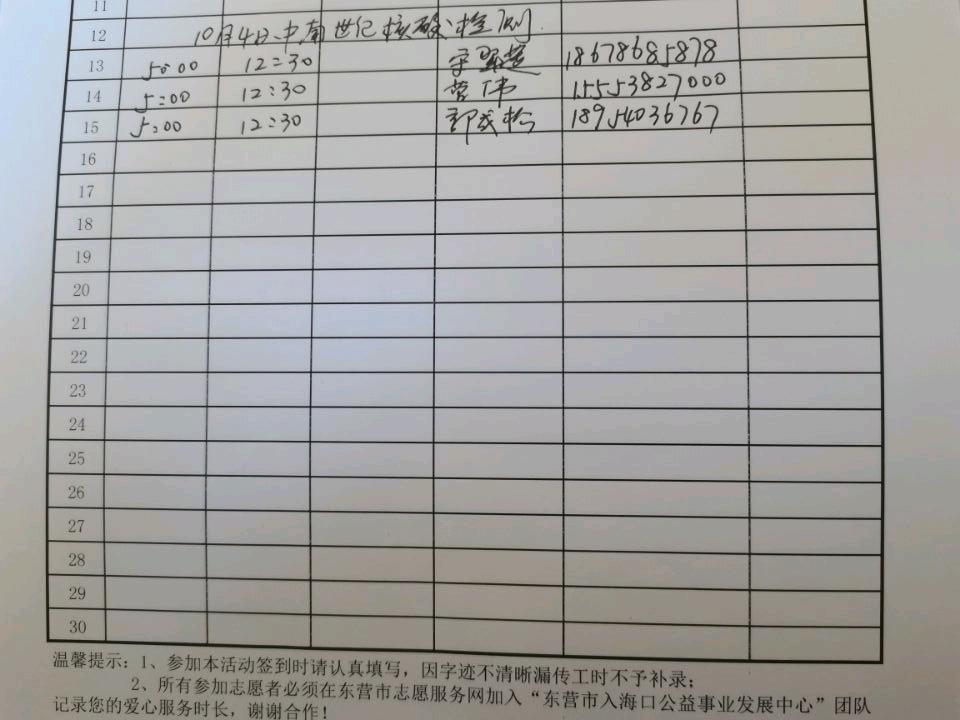 11
12 10月4日中南世纪核酸检测
13 5:00 12:30 18678685878
14 5:00 12:30 营伟 15553827000
15 5:00 12:30 郭成松 18954036767
16
17
18
19
20
21
22
23
24
25
26
27
28
29
30
温馨提示：1、参加本活动签到时请认真填写，因字迹不清晰漏传工时不予补录；
2、所有参加志愿者必须在东营市志愿服务网加入“东营市入海口公益事业发展中心”团队
记录您的爱心服务时长，谢谢合作！